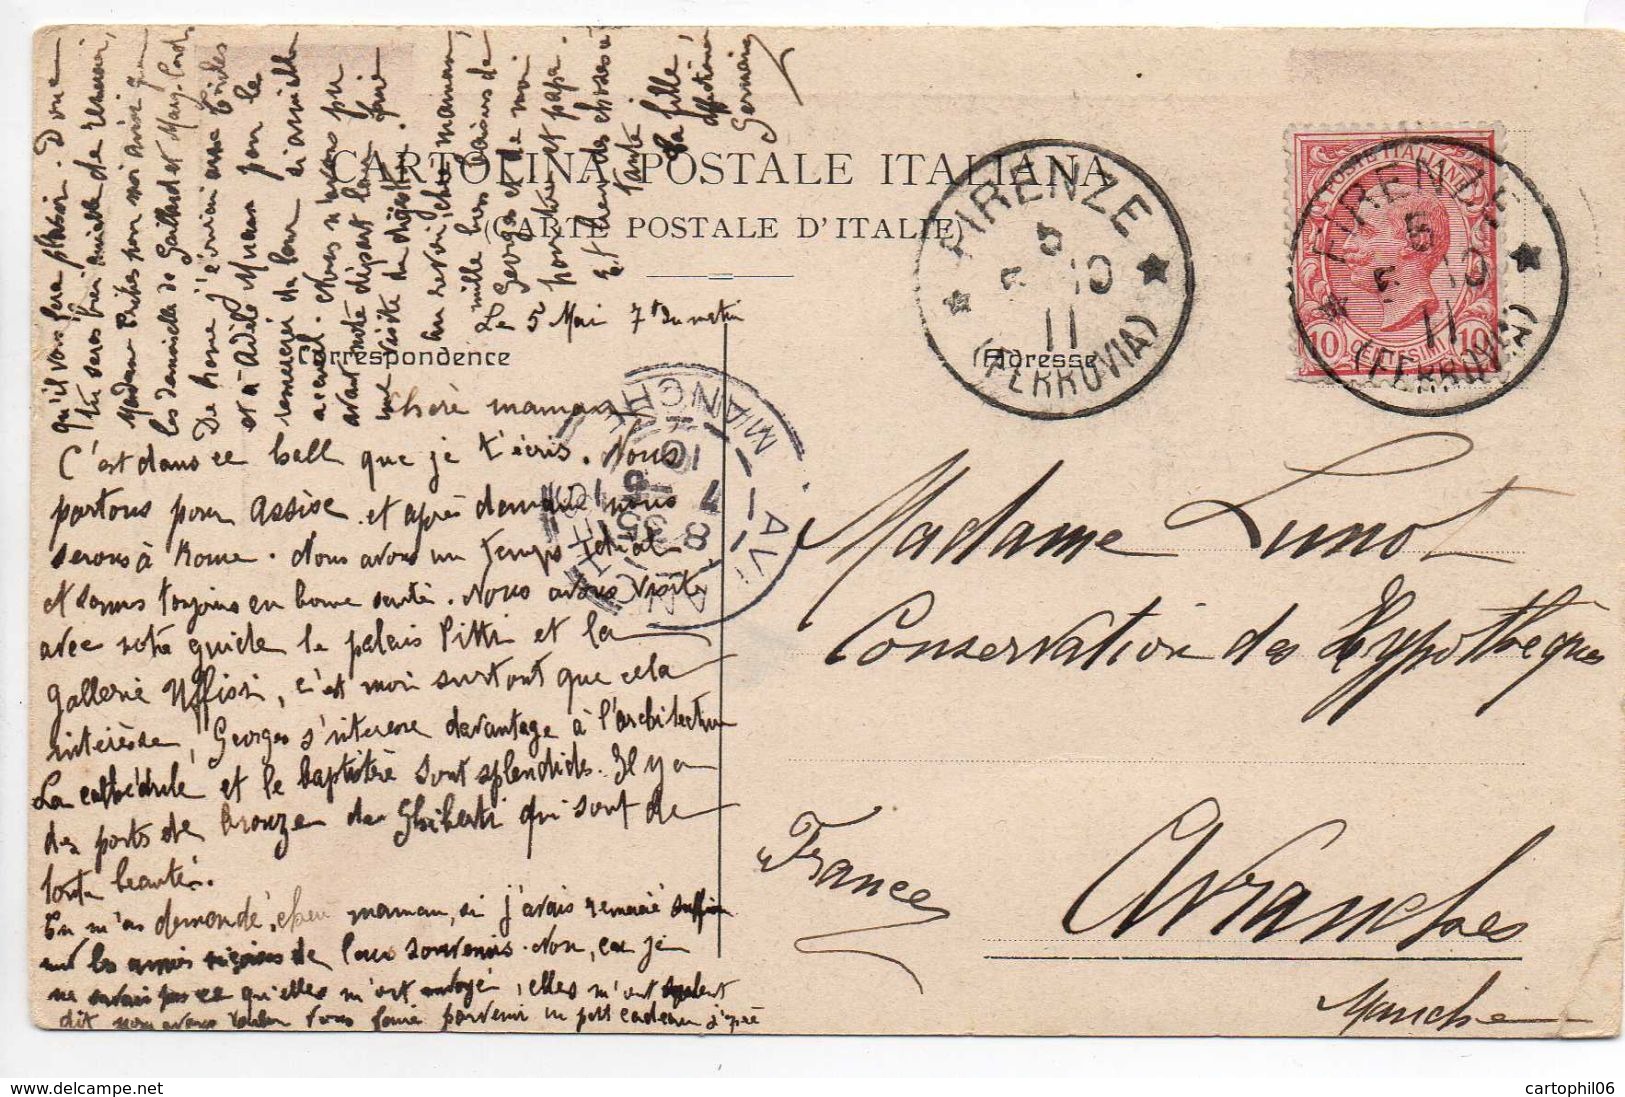 CARTOLINA POSTALE ITALIANA
(CARTE POSTALE D'ITALIE)
Correspondence
Adresse
FIRENZE
5
5 10
11
(FERROVIA)
POSTE ITALIANE
10 CENTESIMI 10
FIRENZE
5
5 10
11
(FERROVIA)
MANCHE
Le 5 Mai 7h du matin
Chère maman
C'est dans ce hall que je t'écris. Nous
partons pour Assise et après demain nous
serons à Rome. Nous avons un temps idéal
et sommes toujours en bonne santé. Nous avons visité
avec notre guide le palais Pitti et la
gallerie Uffisi, c'est moi surtout que cela
intéresse, Georges s'intéresse davantage à l'architecture
La cathédrale et le baptistère sont splendides. Il y a
des ports de bronze de Ghiberti qui sont de
toute beauté.
Tu m'as demandé, chère maman, si j'avais remercié
les amies niçoises de leurs souvenirs. Non, car je
ne savais pas ce qu'elles m'ont envoyé, elles m'ont
dit nous avons voulu vous faire parvenir un petit cadeau j'
qu'il vous fera plaisir. Donc
tu seras bien aimable de remercier,
Madame
les demoiselles de Gaillard et
De Rome j'écrirai aux
et à Adèle pour la
remercier de leur si aimable
accueil. Nous n'avons pu
avant notre départ leur faire
une visite de digestion.
Au revoir, chère maman,
mille bons baisers de
Georges et de moi
pour toi et papa.
Et bien des choses à
tante
ta fille
affectionnée
Germaine
Madame Lunot
Conservation des Hypothèques
Avranches
Manche
France
cartophil06